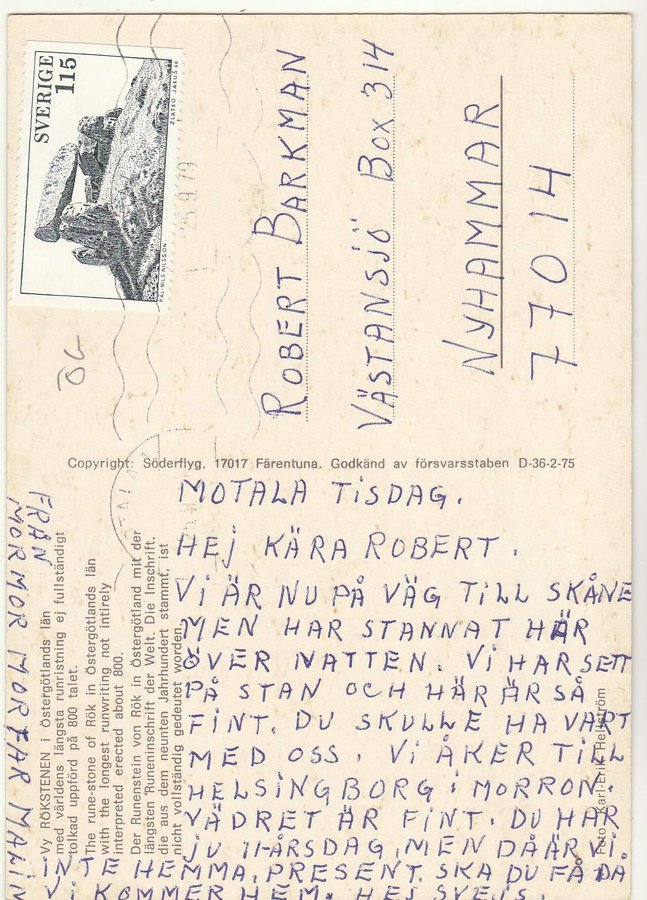 SVERIGE 115
ZLATKO JAKUŠ sc
PÅL-NILS NILSSON
25.9.79
ÖG
ROBERT BARKMAN
VÄSTANSJÖ BOX 314
NYHAMMAR
77014
Copyright: Söderflyg, 17017 Färentuna. Godkänd av försvarsstaben D-36-2-75
MOTALA TISDAG.
HEJ KÄRA ROBERT.
VI ÄR NU PÅ VÄG TILL SKÅNE
MEN HAR STANNAT HÄR
ÖVER NATTEN. VI HAR SETT
PÅ STAN OCH HÄR ÄR SÅ
FINT. DU SKULLE HA VART
MED OSS. VI ÅKER TILL
HELSINGBORG I MORRON.
VÄDRET ÄR FINT. DU HAR
JU 11-ÅRSDAG, MEN DÅ ÄR VI
INTE HEMMA, PRESENT SKA DU FÅ DA
VI KOMMER HEM. HEJ SVEJS.
FRÅN
MORMOR MORFAR MALIN
Vy RÖKSTENEN i Östergötlands län
med världens längsta runristning ej fullständigt
tolkad uppförd på 800 talet.
The rune-stone of Rök in Östergötlands län
with the longest runwriting not intirely
Interpreted erected about 800.
Der Runenstein von Rök in Östergötland mit der
längsten Runeninschrift der Welt. Die Inschrift,
die aus dem neunten Jahrhundert stammt, ist
nicht vollständig gedeutet worden.
Foto: Karl-Erik